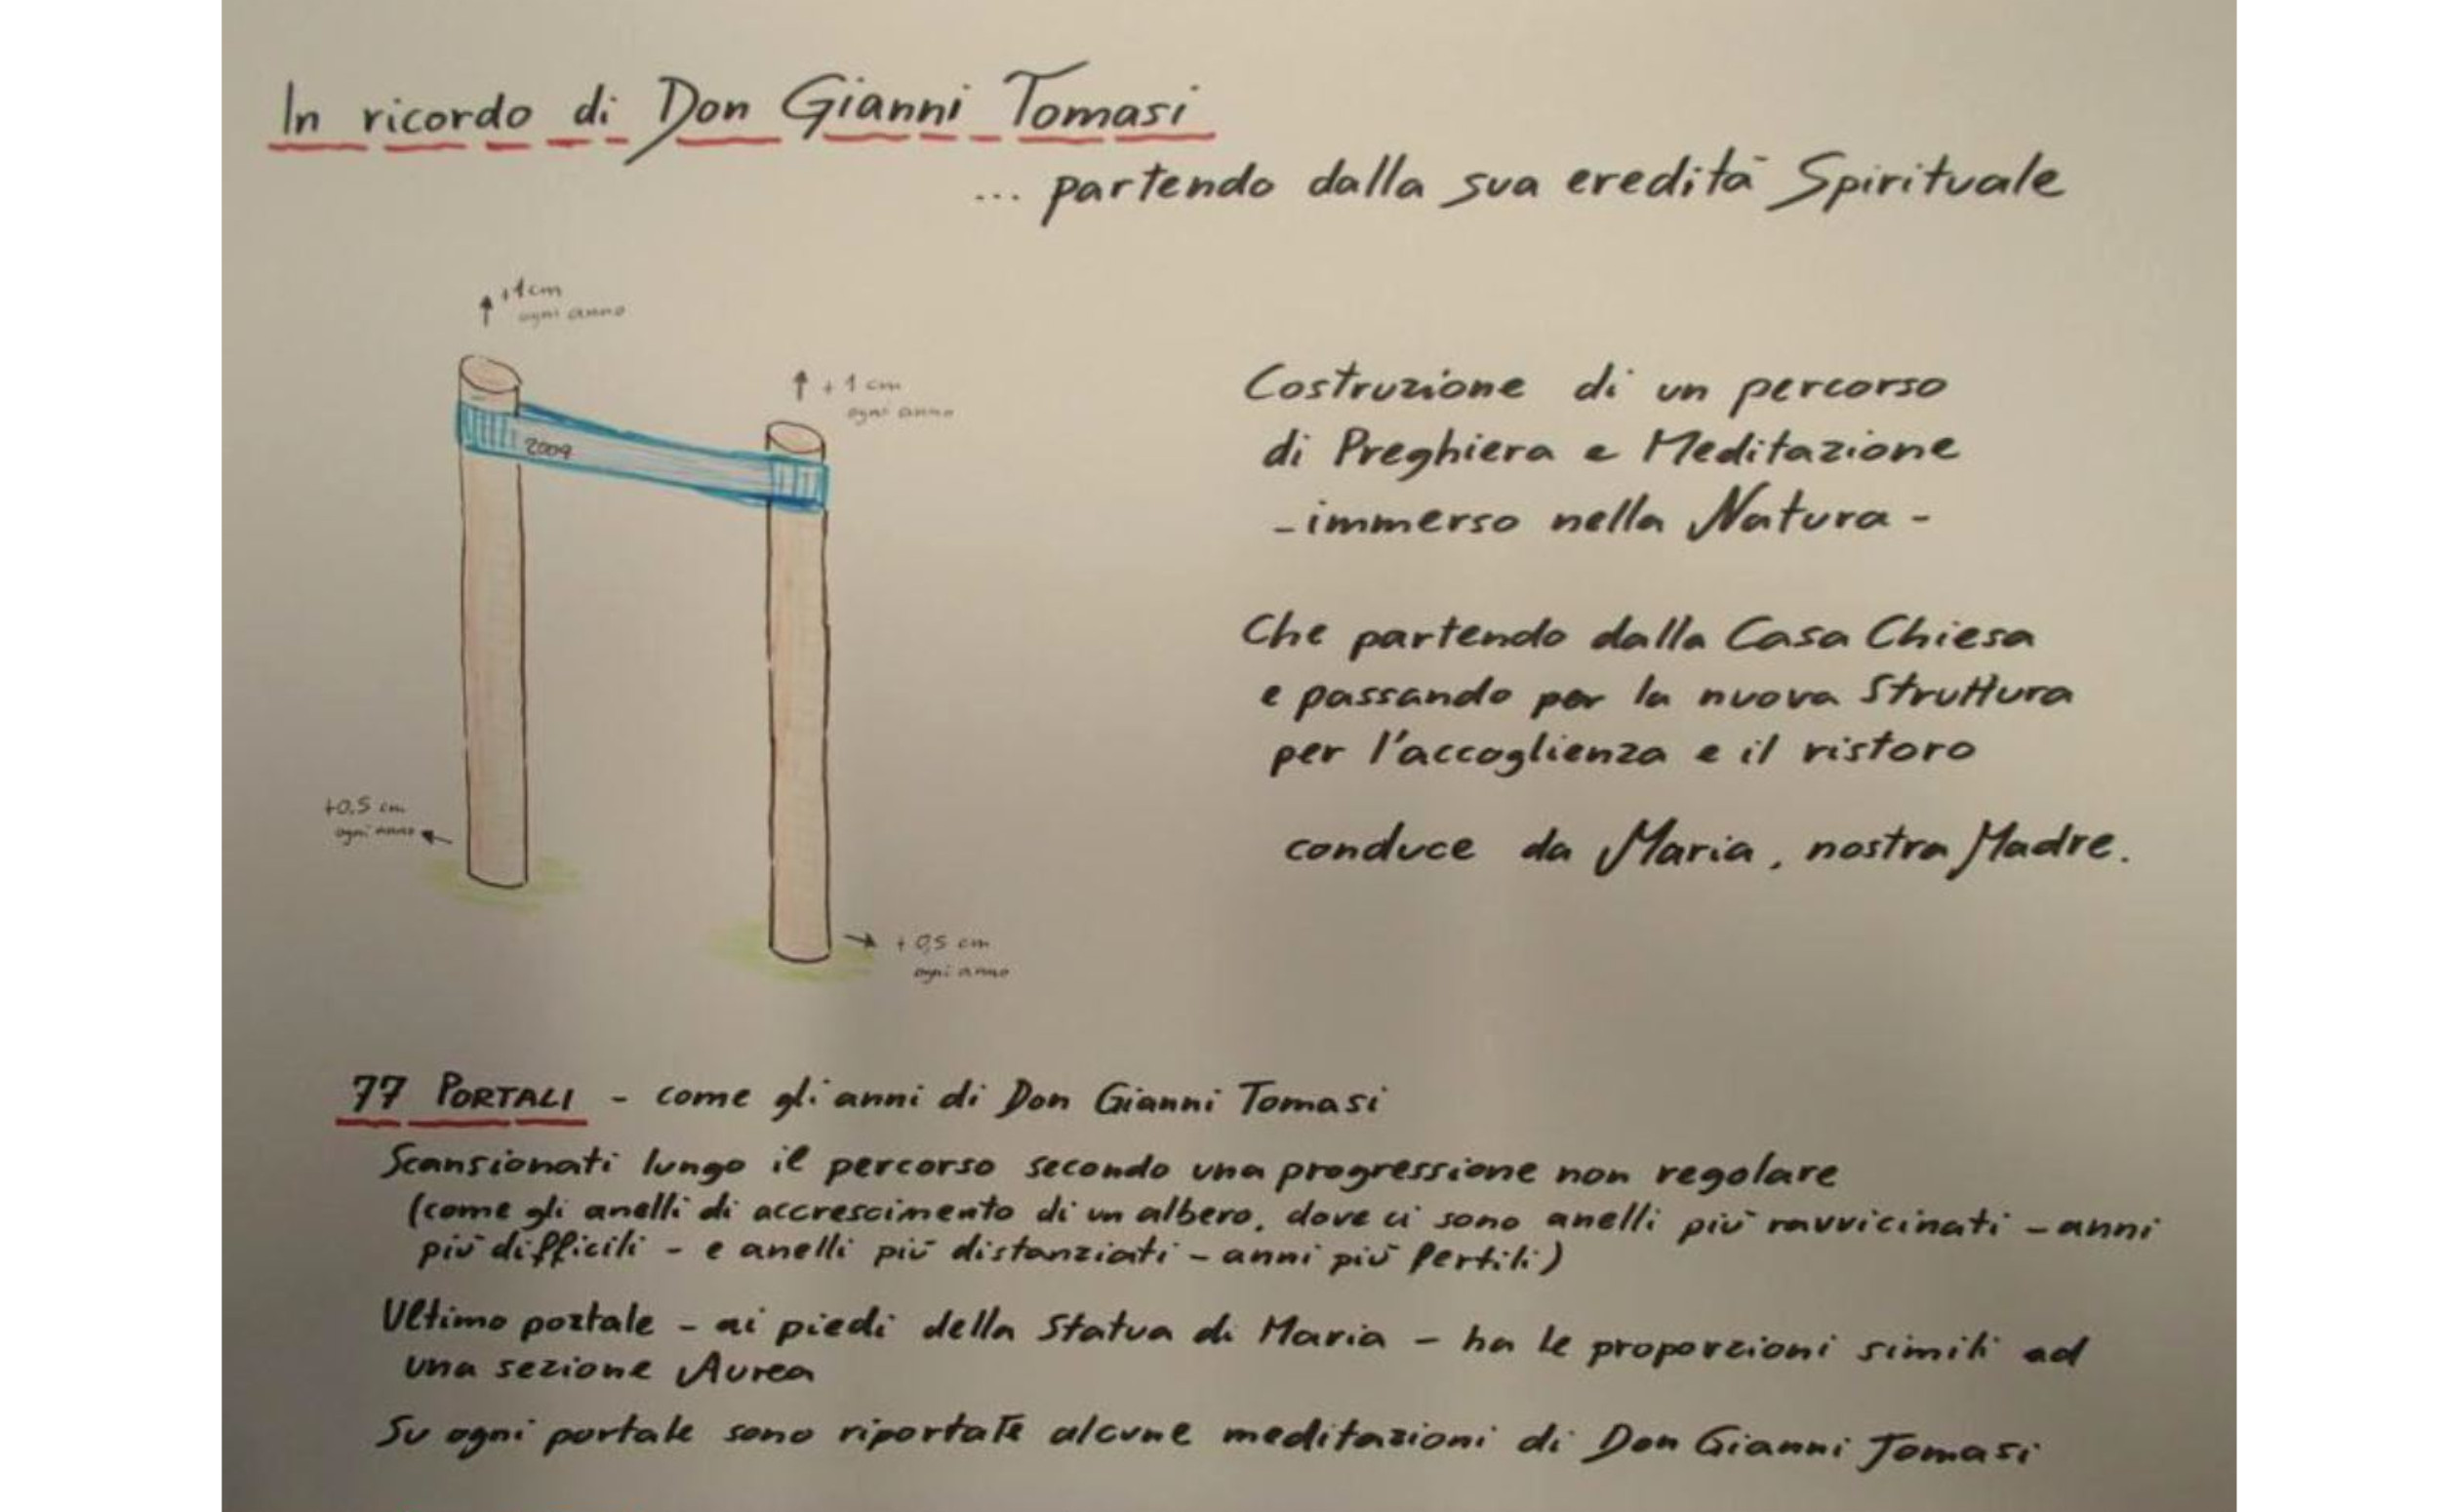 In ricordo di Don Gianni Tomasi
... partendo dalla sua eredità Spirituale
+1cm
ogni anno
+1 cm
ogni anno
2009
Costruzione di un percorso
di Preghiera e Meditazione
- immerso nella Natura -
Che partendo dalla Casa Chiesa
e passando per la nuova Struttura
per l'accoglienza e il ristoro
conduce da Maria, nostra Madre.
+0,5 cm
ogni anno
+0,5 cm
ogni anno
77 PORTALI - come gli anni di Don Gianni Tomasi
Scansionati lungo il percorso secondo una progressione non regolare
(come gli anelli di accrescimento di un albero, dove ci sono anelli più ravvicinati - anni
più difficili - e anelli più distanziati - anni più fertili)
Ultimo portale - ai piedi della Statua di Maria - ha le proporzioni simili ad
una sezione Aurea
Su ogni portale sono riportate alcune meditazioni di Don Gianni Tomasi